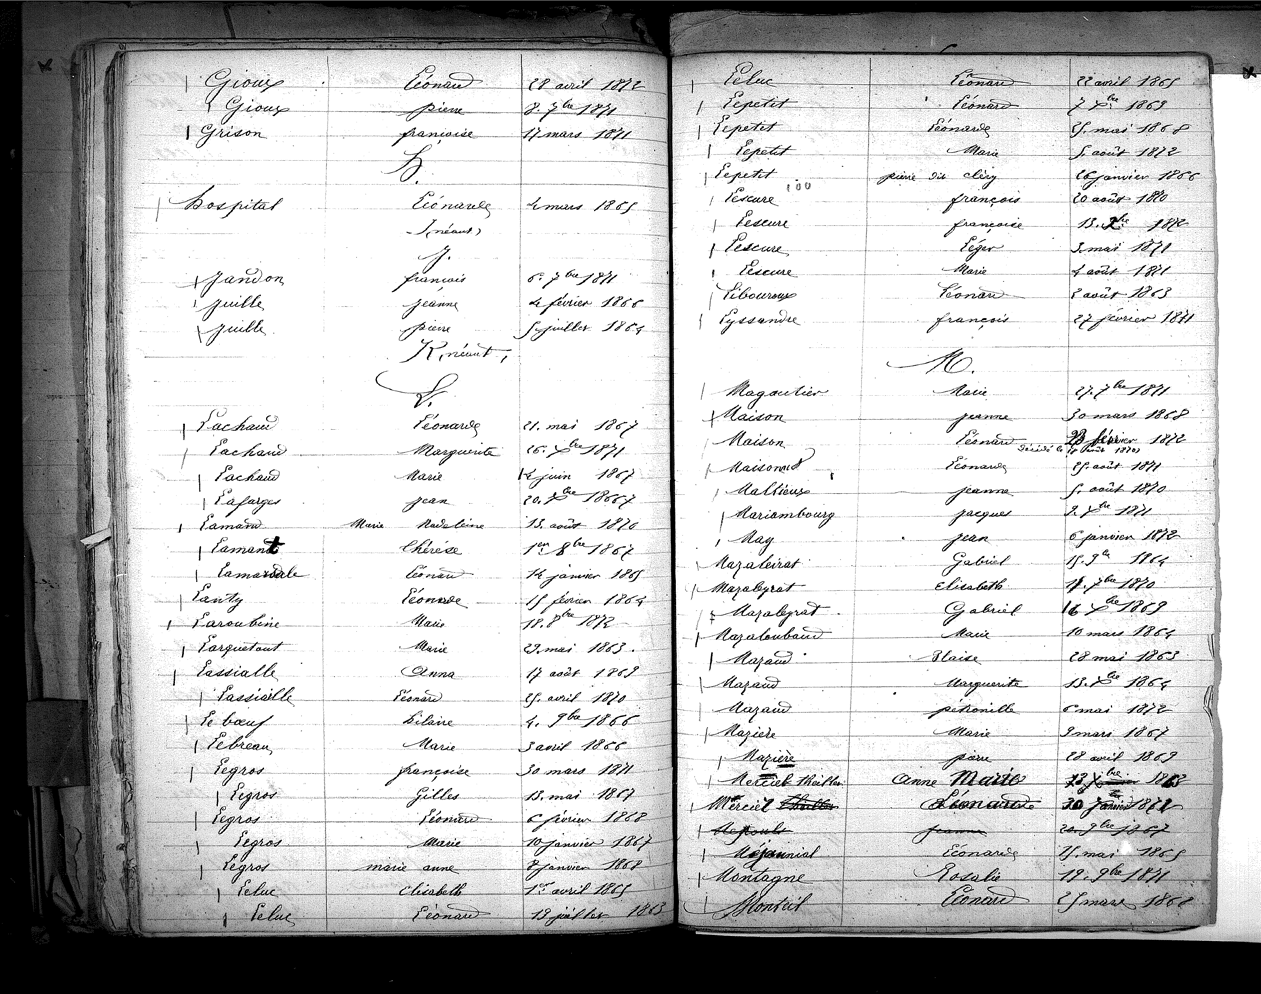 Gioux Léonard 28 avril 1872
Gioux pierre 8. 7bre 1871
Grison françoise 17 mars 1871
H.
hospital Léonarde 4 mars 1865
I (néant)
J.
Jandon françois 6. 7bre 1871
Juille jeanne 4 février 1866
Juille pierre 5 juillet 1864
K (néant)
L.
Lachaud Léonarde 21. mai 1867
Lachaud Marguerite 26. Xbre 1871
Lachaud Marie juin 1867
Lafarges jean 20. Xbre
Lamand Marie Madeleine 13. août 1870
Lamant thérèse 1er 8bre 1867
Léonard 14 janvier 1865
Lanty Léonarde 15 février 1864
Laroubine Marie 18. 8bre 1872
Larquetout Marie 29. mai 1863.
Lassialle Anna 17 août 1869
Lassialle Léonard 25. avril 1870
Le bœuf hilaire 4. 9bre 1866
Lebreau Marie 3 avril 1866
Legros françoise 30 mars 1871
Legros Gilles 13. mai 1867
Legros Léonard 6 février 1868
Legros Marie 10 janvier 1867
Legros marie anne 8 janvier 1868
Leluc Elisabeth 1er avril 1865
Leluc Léonard 19 juillet 1863
Leluc Léonard 22 avril 1865
Lepetit Léonard 7 Xbre 1869
Lepetit Léonarde 25. mai 1868
Lepetit Marie 5. août 1872
Lepetit pierre dit cléry 26 janvier 1866
Lescure françois 20 août 1870
100
Lescure françoise 13. 1872
Lescure Léger 3. mai 1871
Lescure Marie 4 août 1871
Libouroux Léonard 2 août 1863
Lyssandre françois 27 février 1871
M.
Magoutier Marie 27. 7bre 1871
Maison jeanne 30 mars 1868
Maison Léonard février 1872
Maisonnet Léonarde 25. août 1871
Mallieux jeanne 5. août 1870
Mariambourg jacques 2. Xbre 1871
May jean 6 janvier 1872
Mazaleirat Gabriel 15. 9bre 1864
Mazaleyrat Elisabeth 7bre 1870
Mazaleyrat Gabriel 16 Xbre 1869
Mazaloubaud Marie 10 mars 1864
Mazaud Blaise 28 mai 1863
Mazaud Marguerite 13. Xbre 1864
Mazaud petronille 6 mai 1872
Mazière Marie 9 mars 1867
Mazière pierre 28 avril 1869
Merciel Anne Marie
Merciel 30
jeanne 20. 9bre 1867
Méjannial Léonarde 15. mai 1865
Montagne Rosalie 12. 9bre 1871
Monteil Léonard 25 mars 1868